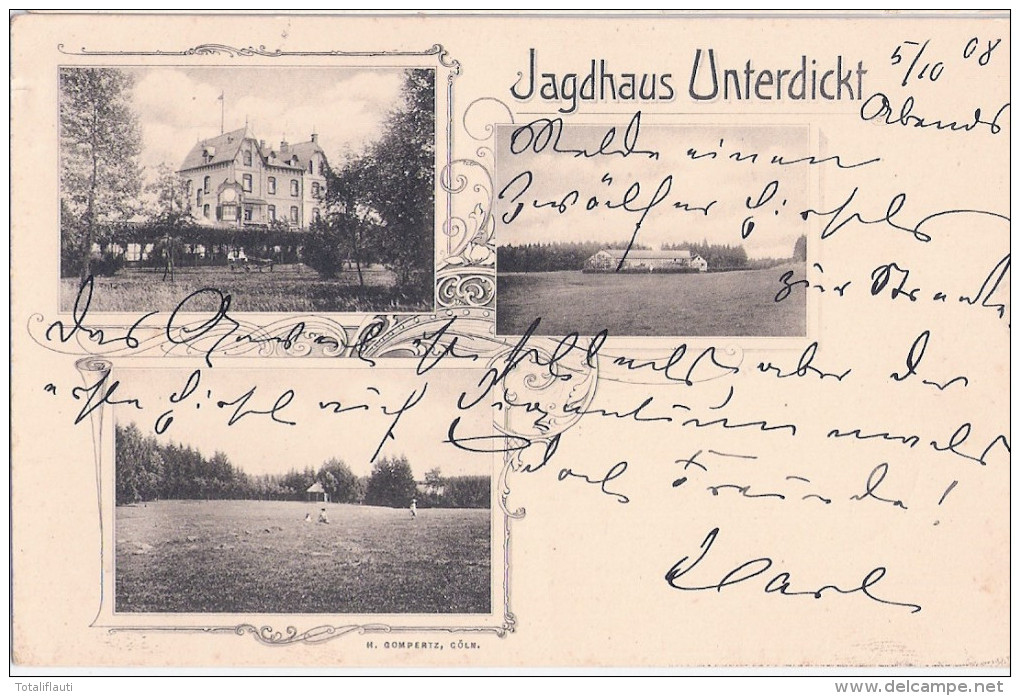 Jagdhaus Unterdickt
5/10 08
Abends
Melde einen
Zwölfer Hirsch
zur Strecke
Das Geweih ist schlecht aber der
erste Hirsch
doch Freude!
Karl
H. GOMPERTZ, CÖLN.
Totaliflauti
delcampe.net